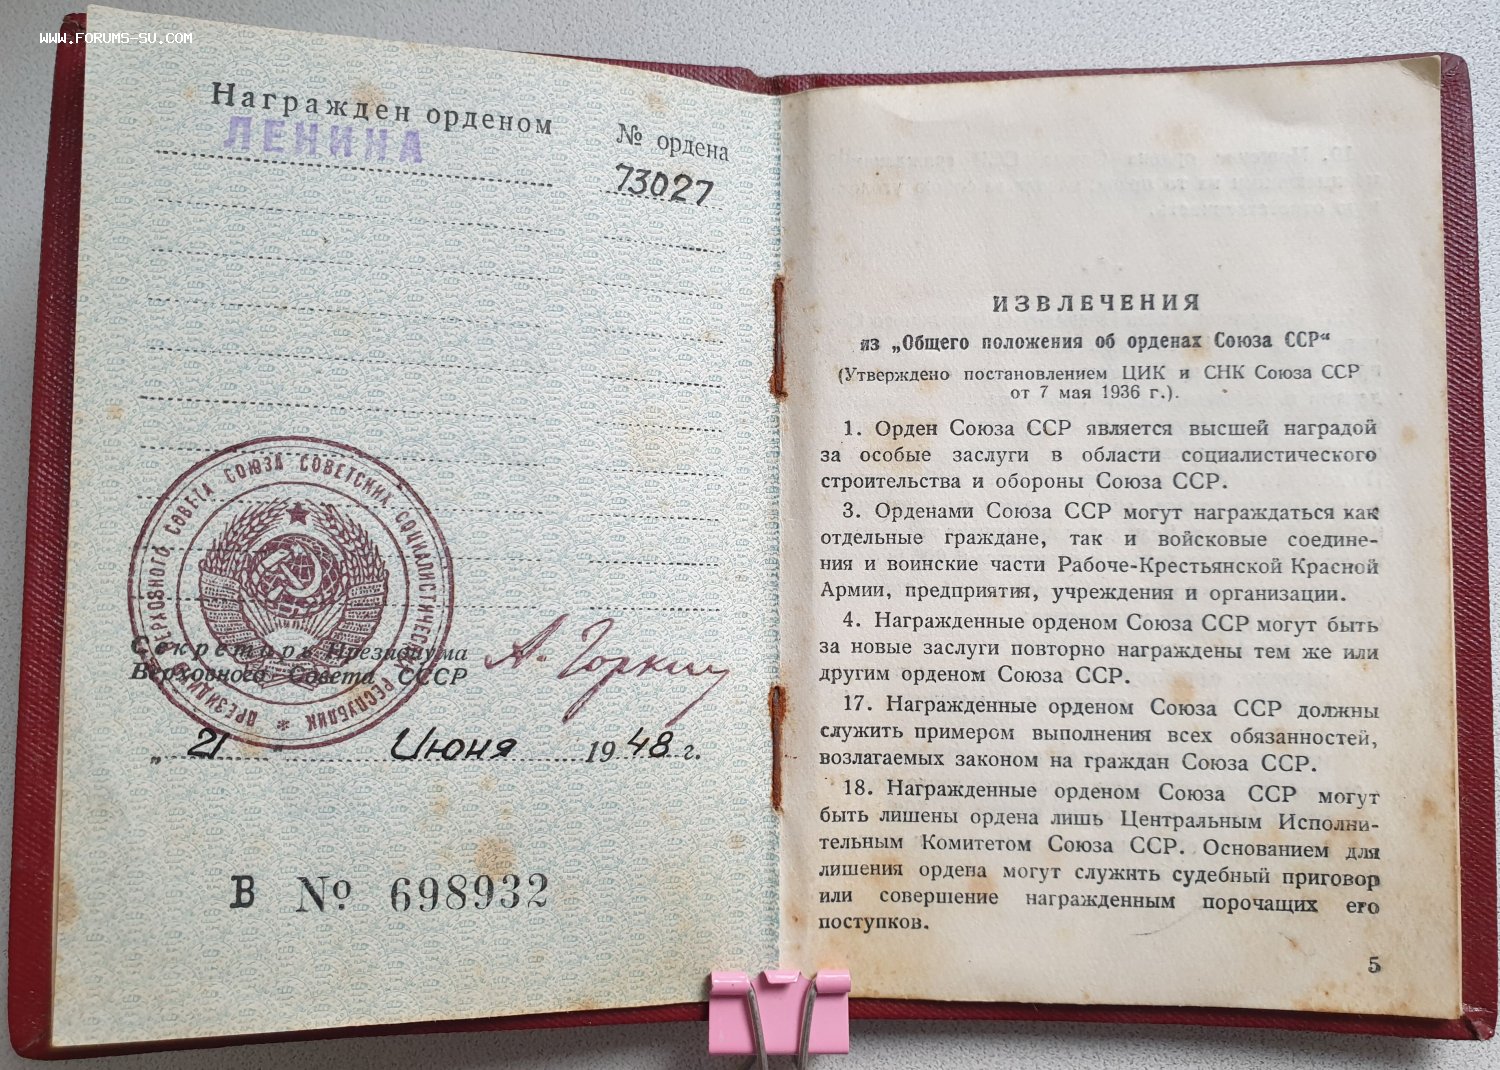 WWW.FORUMS-SU.COM
Награжден орденом
№ ордена
ЛЕНИНА
73027
ПРЕЗИДИУМ ВЕРХОВНОГО СОВЕТА СОЮЗА СОВЕТСКИХ СОЦИАЛИСТИЧЕСКИХ РЕСПУБЛИК *
Секретарь Президиума
Верховного Совета СССР
А. Горкин
„21" Июня 1948 г.
В № 698932
ИЗВЛЕЧЕНИЯ
из „Общего положения об орденах Союза ССР“
(Утверждено постановлением ЦИК и СНК Союза ССР
от 7 мая 1936 г.).
1. Орден Союза ССР является высшей наградой
за особые заслуги в области социалистического
строительства и обороны Союза ССР.
3. Орденами Союза ССР могут награждаться как
отдельные граждане, так и войсковые соедине-
ния и воинские части Рабоче-Крестьянской Красной
Армии, предприятия, учреждения и организации.
4. Награжденные орденом Союза ССР могут быть
за новые заслуги повторно награждены тем же или
другим орденом Союза ССР.
17. Награжденные орденом Союза ССР должны
служить примером выполнения всех обязанностей,
возлагаемых законом на граждан Союза ССР.
18. Награжденные орденом Союза ССР могут
быть лишены ордена лишь Центральным Исполни-
тельным Комитетом Союза ССР. Основанием для
лишения ордена могут служить судебный приговор
или совершение награжденным порочащих его
поступков.
5